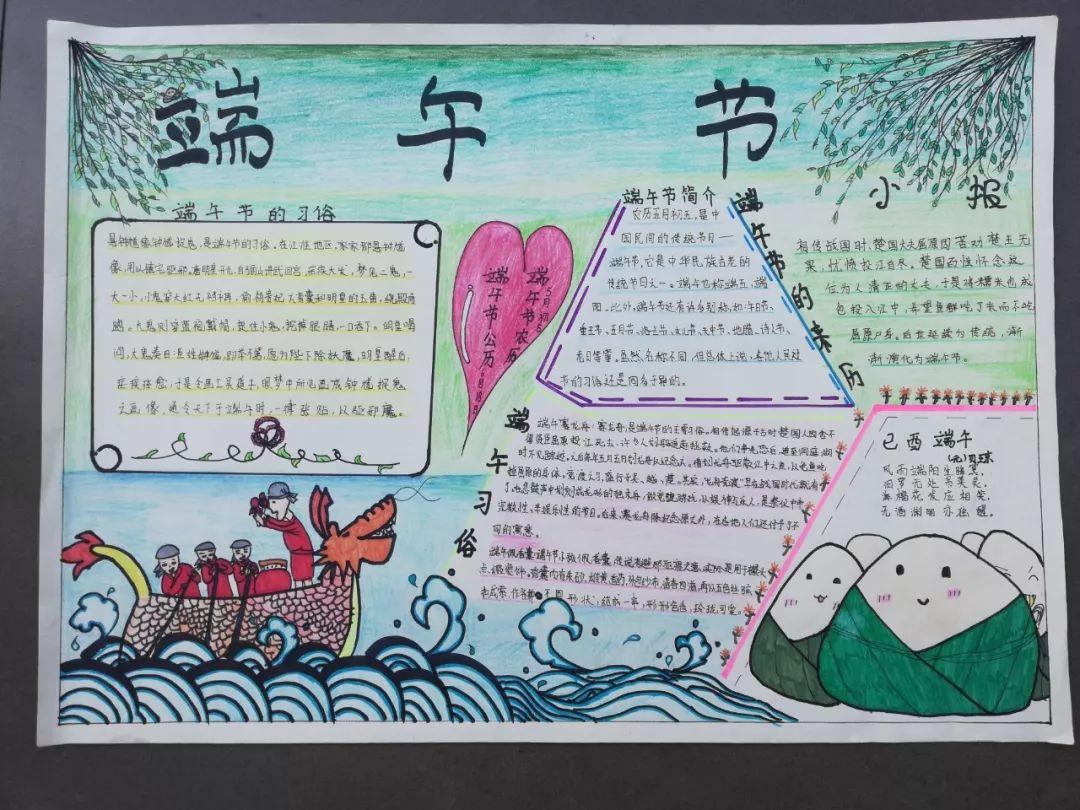 端午节
小报
端午节的习俗
悬钟馗像:钟馗捉鬼,是端午节的习俗。在江淮地区,家家都悬钟馗
像,用以镇宅驱邪。唐明皇开元,自骊山讲武回宫,疟疾大发,梦见二鬼,一
大一小,小鬼穿大红无裆裤,偷杨贵妃之香囊和明皇的玉笛,绕殿而
跑。大鬼则穿蓝袍戴帽,捉住小鬼,挖掉眼睛,一口吞下。明皇喝
问,大鬼奏曰:臣姓钟馗,即武举不第,愿为陛下除妖魔,明皇醒后,
疟疾痊愈,于是令画工吴道子,照梦中所见画成钟馗捉鬼
之画像,通令天下于端午时,一律张贴,以驱邪魔。
端午节农历
5月初5
端午节公历
6月18日
端午节简介
农历五月初五,是中
国民间的传统节日——
端午节,它是中华民族古老的
传统节日之一。端午也称端五,端
阳。此外,端午节还有许多别称,如:午日节、
重五节、五月节、浴兰节、女儿节、天中节、地腊、诗人节、
龙日等等。虽然名称不同,但总体上说,各地人民过
节的习俗还是同多于异的。
端午节的来历
相传战国时,楚国大夫屈原因苦劝楚王无
果,忧愤投江自尽。楚国百姓怀念这
位为人清正的丈夫,于是将糯米也成
包投入江中,希望鱼虾吃了米而不吃
屈原尸身。后世延续为传统,渐
渐演化为端午节。
端午习俗
端午赛龙舟:赛龙舟,是端午节的主要习俗。相传起源于古时楚国人因舍不
得贤臣屈原投江死去,许多人划船追赶拯救。他们争先恐后,追至洞庭湖
时不见踪迹。之后每年五月五日划龙舟以纪念之。借划龙舟驱散江中之鱼,以免鱼吃
掉屈原的身体。竞渡之习,盛行于吴、越、楚。其实,“龙舟竞渡”早在战国时代就有
了。
同的寓意。
端午佩香囊:端午节小孩佩香囊,传说有避邪驱瘟之意,实际是用于襟头
点缀装饰。香囊内有朱砂、雄黄、香药,外包以丝布,清香四溢,再以五色丝线弦
扣成索,作各种不同形状,结成一串,形形色色,玲珑可爱。
己酉端午
(元)贝琼
风雨端阳生晦冥,
汨罗无处吊英灵。
海榴花发应相笑,
无酒渊明亦独醒。